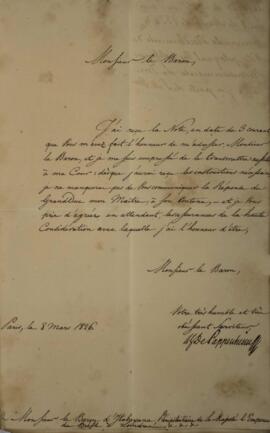 Monsieur le Baron,
J'ai reçu la Note, en date du 3 courant
que Vous m'avez fait l'honneur de m'adresser, Monsieur
le Baron, et je me suis empressé de la transmettre
à ma Cour: dèsque j'aurai reçu les instructions
je ne manquerai pas de Vous communiquer la Réponse du
GrandDuc mon Maître, à Son Contenu, et je Vous
prie d'agréer en attendant, les assurances de la haute
Considération avec laquelle j'ai l'honneur d'être,
Monsieur le Baron,
Votre très humble et très
obéissant Serviteur
de Pappenheim
Paris, le 8 Mars 1826
à Monsieur le Baron d'Itabayana, de Sa Majesté l'Empereur
du Brésil, à